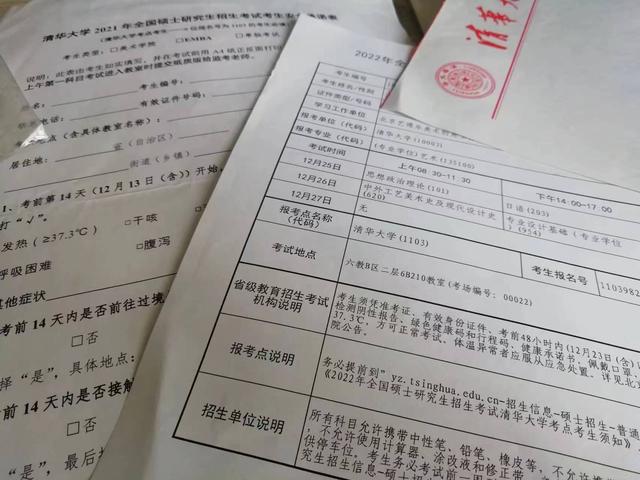 清华大学 2021 年全国硕士研究生招生考试考生
考生类型：□美术学院 □EMBA □单独考试
说明：此表由考生如实填写，并在考试前用 A4 纸正反面打印
上午第一科目考试进入教室时提交纸质版给监考老师。
姓名：
考生编号：
有效证件号码：
点（含具体教室名称）：
居住地：
省（自治区）
街道（乡镇）
1、考前第 14 天（12 月 13 日（含））开始，
打“√”。
发热（≥37.3℃） □干咳
呼吸困难 □腹泻
其他症状
考前 14 天内是否前往过境
□否
择“是”，具体地点：
前 14 天内是否接触
□否
“是”，最后
2022年全
考生编号
考生姓名/性别
证件类型/号码
学习工作单位
报考单位（代码） 清华大学(10003)
报考专业（代码） (专业学位)艺术(135100)
考试时间 上午08:30-11:30 下午14:00-17:00
12月25日 思想政治理论(101) 日语(203)
12月26日 中外工艺美术史及现代设计史(620) 专业设计基础（专业学位）(954)
12月27日 无
报考点名称（代码） 清华大学(1103) 考生报名号 1103982
考试地点 六教B区二层6B210教室(考场编号：00022)
省级教育招生考试机构说明
考生须凭准考证、有效身份证件、考前48小时内(12月23日(含)
检测阴性报告、绿色健康码和行程码、健康承诺书，佩戴口罩，
37.3℃，方可正常考试，体温异常者应服从应急处置。详见北京
院公告。
报考点说明
务必提前到"yz.tsinghua.edu.cn-招生信息-硕士招生-普通
《2022年全国硕士研究生招生考试清华大学考点考生须知》
招生单位说明
所有科目允许携带中性笔、铅笔、橡皮等，
，不允许使用计算器、涂改液和修正带
供停车位，考生务必考试前一周
究生招生信息-硕士
清华大